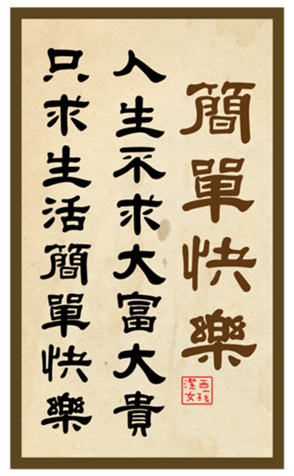 簡單快樂
人生不求大富大貴
只求生活簡單快樂